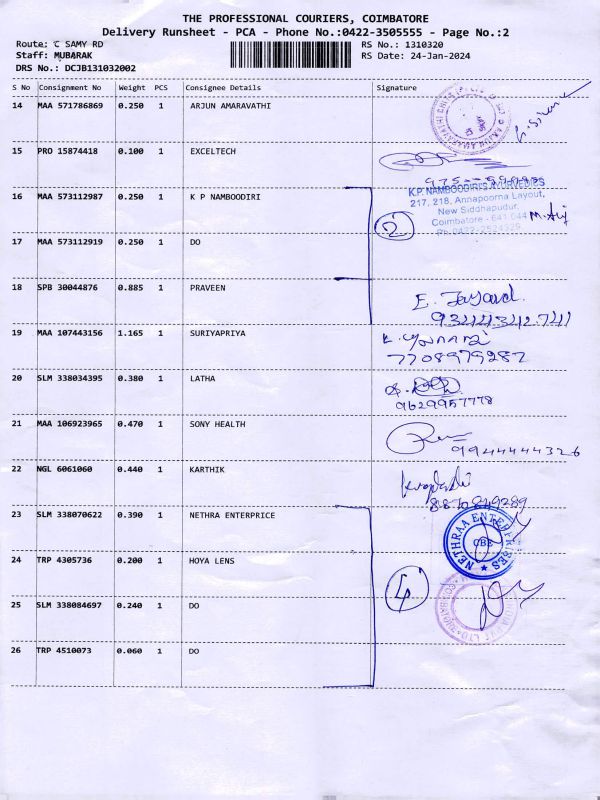 THE PROFESSIONAL COURIERS, COIMBATORE
Delivery Runsheet - PCA - Phone No.:0422-3505555 - Page No.:2
Route: C SAMY RD RS No.: 1310320
Staff: MUBARAK RS Date: 24-Jan-2024
DRS No.: DCJB131032002
S No Consignment No Weight PCS Consignee Details Signature
14 MAA 571786869 0.250 1 ARJUN AMARAVATHI
15 PRO 15874418 0.100 1 EXCELTECH
16 MAA 573112987 0.250 1 K P NAMBOODIRI
K.P. NAMBOODIRI'S AYURVEDICS
217, 218, Annapoorna Layout,
New Siddhapudur,
Coimbatore - 641 044
Ph: 0422-2524329
2
17 MAA 573112919 0.250 1 DO
18 SPB 30044876 0.885 1 PRAVEEN
9344342741
19 MAA 107443156 1.165 1 SURIYAPRIYA
7708979287
20 SLM 338034395 0.380 1 LATHA
9629957778
21 MAA 106923965 0.470 1 SONY HEALTH
9944444326
22 NGL 6061060 0.440 1 KARTHIK
8870849289
23 SLM 338070622 0.390 1 NETHRA ENTERPRICE
NETHRAA ENTERPRISES
CBE
24 TRP 4305736 0.200 1 HOYA LENS
4
25 SLM 338084697 0.240 1 DO
26 TRP 4510073 0.060 1 DO